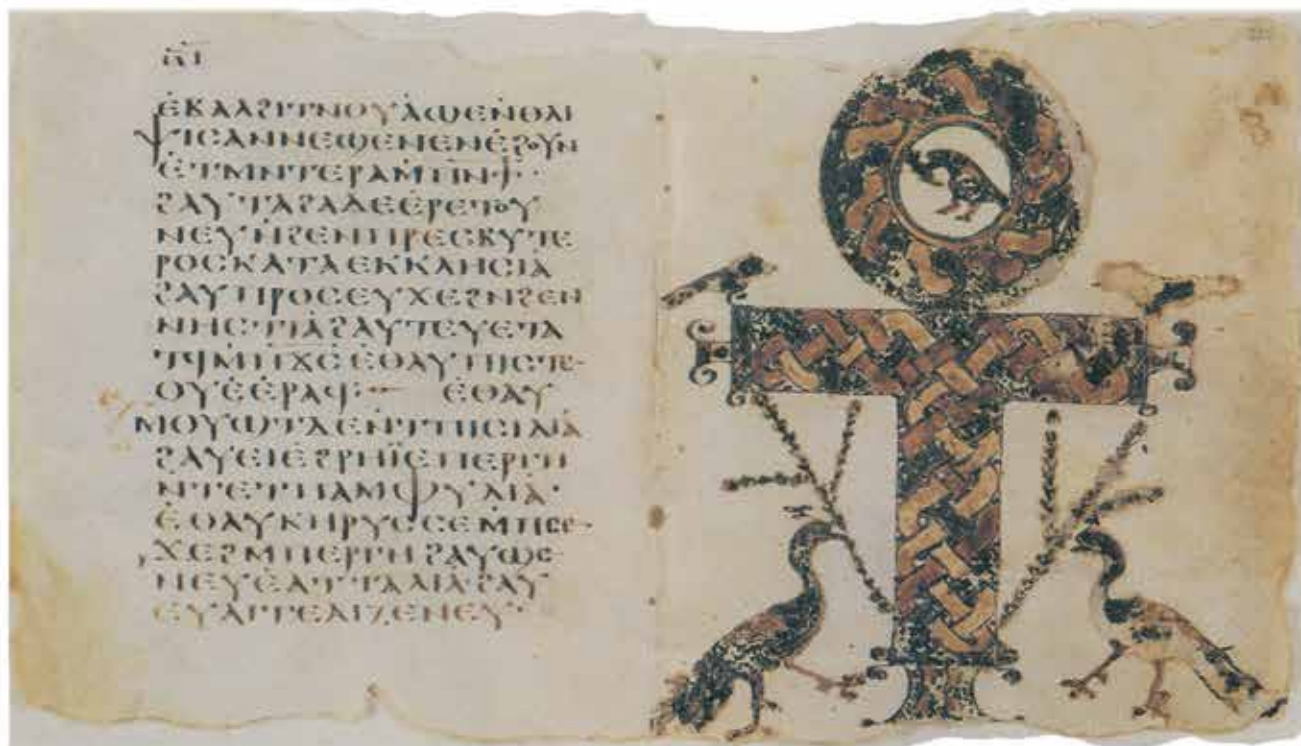 ⲉⲕⲁⲁϩⲓⲧⲛⲟⲩⲁϣⲉⲛⲑⲗⲓ
ⲯⲓⲥⲁⲛⲛⲉϣⲉⲛⲉⲛⲉϩⲟⲩⲛ
ⲉⲧⲙⲛⲧⲉⲣⲁⲙⲡⲛϯ··
ϩⲁⲩⲧⲁϩⲁⲇⲉⲉⲣⲉⲧⲟⲩ
ⲛⲉⲩⲛϩⲉⲛⲡⲣⲉⲥⲃⲩⲧⲉ
ⲣⲟⲥⲕⲁⲧⲁⲉⲕⲕⲗⲏⲥⲓⲁ
ϩⲁⲩⲡⲣⲟⲥⲉⲩⲭⲉϩⲛϩⲉⲛ
ⲛⲏⲥⲧⲓⲁϩⲁⲩⲧⲉⲩⲉⲧⲁ
ⲧϥⲙⲡϫⲥⲉⲑⲁⲩⲡⲓⲥⲧⲉ
ⲟⲩⲉⲉⲣⲁϥ:— ⲉⲑⲁⲩ
ⲙⲟⲩϣⲧⲇⲉⲛⲧⲡⲓⲥⲓⲇⲓⲁ
ϩⲁⲩⲉⲓⲉϩⲣⲏⲓⲉⲡⲉⲣⲅⲏ
ⲛⲧⲉⲧⲡⲁⲙⲫⲩⲗⲓⲁ·
ⲉⲑⲁⲩⲕⲏⲣⲩⲥⲥⲉⲙⲡⲥⲉ
ϫⲉϩⲙⲡⲉⲣⲅⲏϩⲁⲩϣⲉ
ⲛⲉⲩⲉⲁⲧⲧⲁⲗⲓⲁϩⲁⲩ
ⲉⲩⲁⲅⲅⲉⲗⲓⲍⲉⲛⲉⲩ·